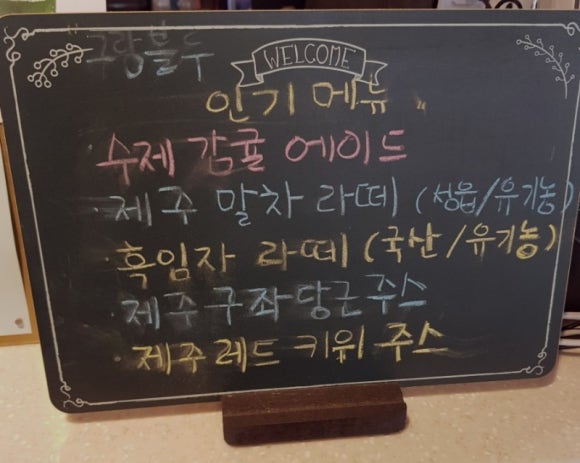 그랑블루
WELCOME
인기 메뉴 "
· 수제 감귤 에이드
· 제주 말차 라떼 (성읍/유기농)
· 흑임자 라떼 (국산/유기농)
· 제주구좌당근주스
· 제주레드 키위 주스